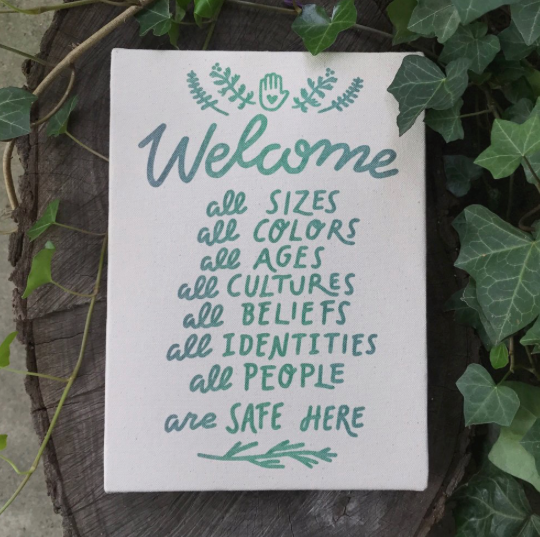 Welcome
all SIZES
all COLORS
all AGES
all CULTURES
all BELIEFS
all IDENTITIES
all PEOPLE
are SAFE HERE